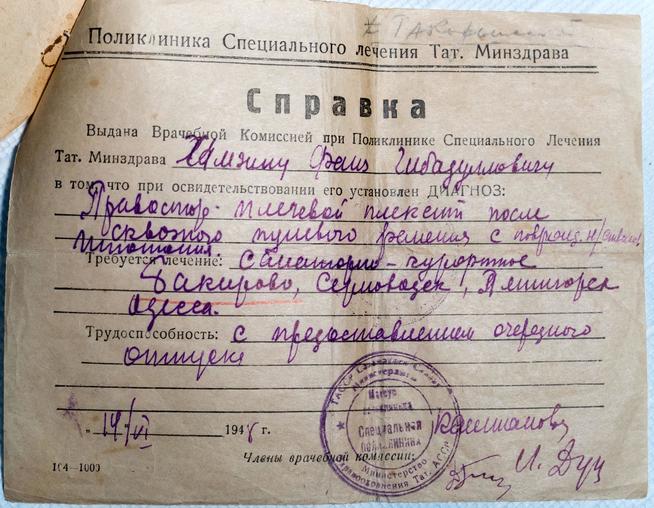 Поликлиника Специального лечения Тат. Минздрава
Справка
Выдана Врачебной Комиссией при Поликлинике Специального Лечения
Тат. Минздрава Хамзину Фаиз Гибадулловичу
в том, что при освидетельствовании его установлен ДИАГНОЗ:
Правостор. плечевой плексит после
сквозного пулевого ранения с
Требуется лечение: санаторно-курортное
Бакирово, Серноводск, Пятигорск
Одесса.
Трудоспособность: с предоставлением очередного
отпуска
„14/VI 1948 г.
Специальная
поликлиника
Министерство
Здравоохранения Тат. АССР
Члены врачебной комиссии:
104—1000